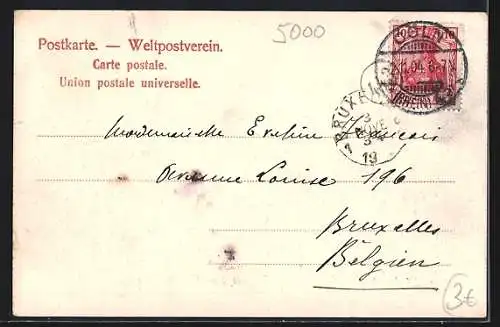 5000
Postkarte. — Weltpostverein.
Carte postale.
Union postale universelle.
CÖLN
11.04. 6-7
(RHEIN)
BRUXEL
1
3
NOVE
19
Mademoiselle Eveline Francois
Avenue Louise 196
Bruxelles
Belgien
3€